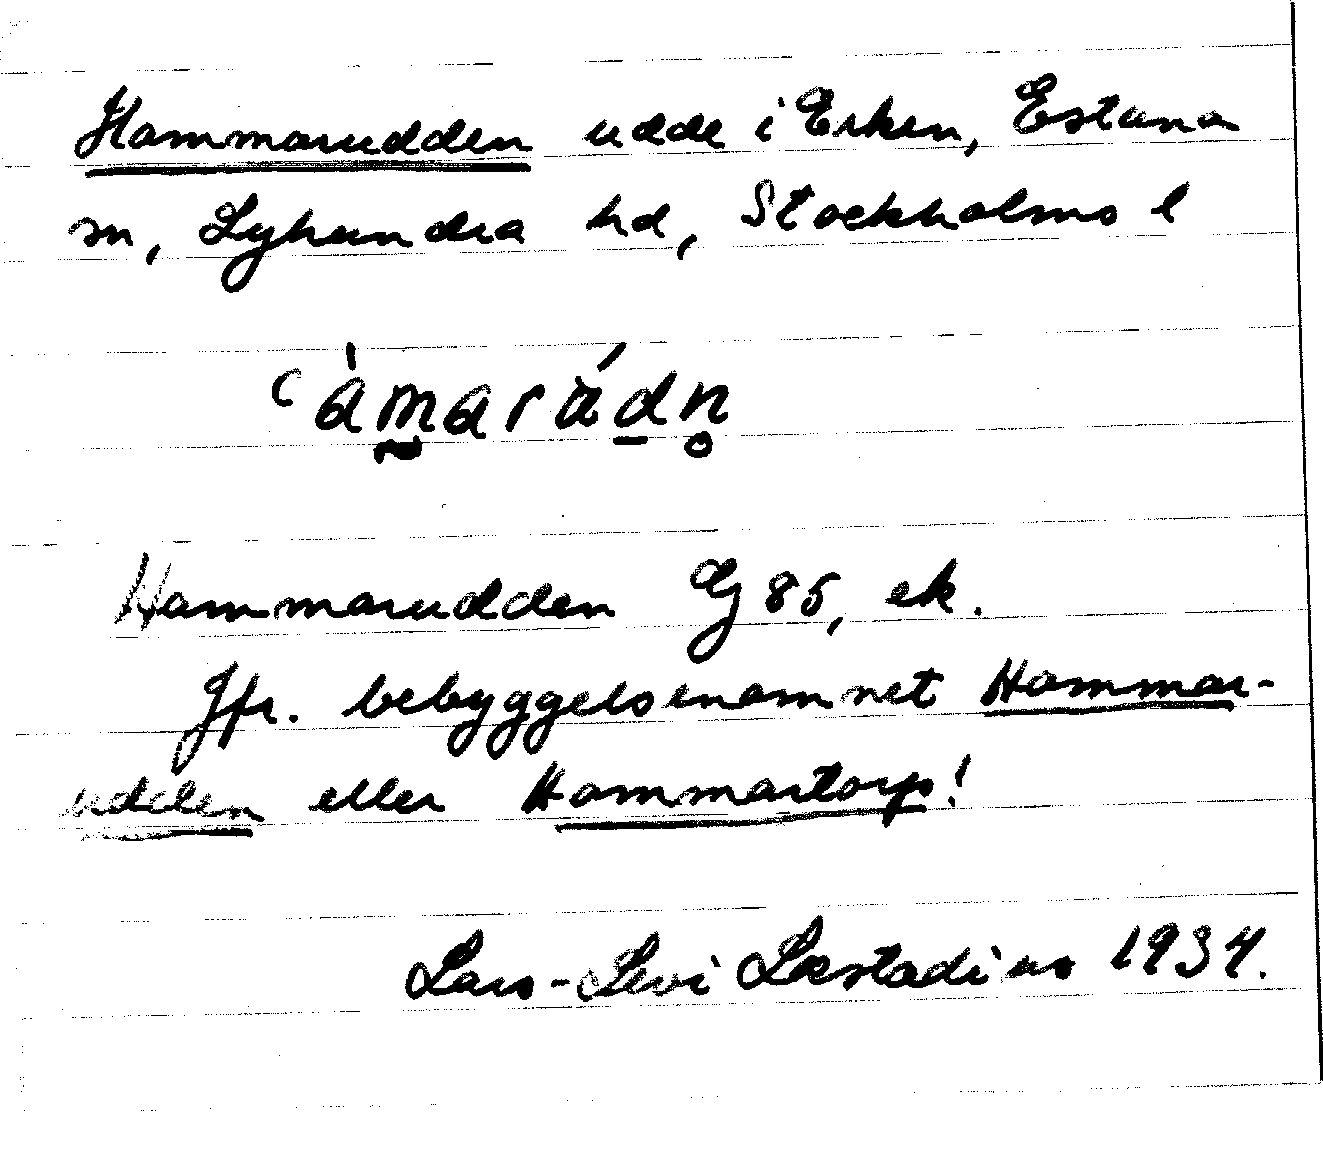 Hammarudden udde i Erken, Estuna
sn, Lyhundra hd, Stockholms l
ʿàmarádn̥
Hammarudden Ej 85, ek.
Jfr. bebyggelsenamnet Hammar-
udden eller Hammartorp!
Lars-Levi Læstadius 1934.